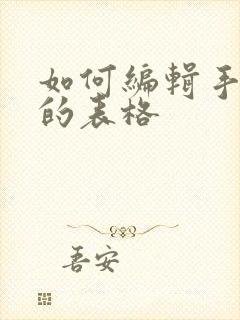 如何编辑手
的表格
吾安